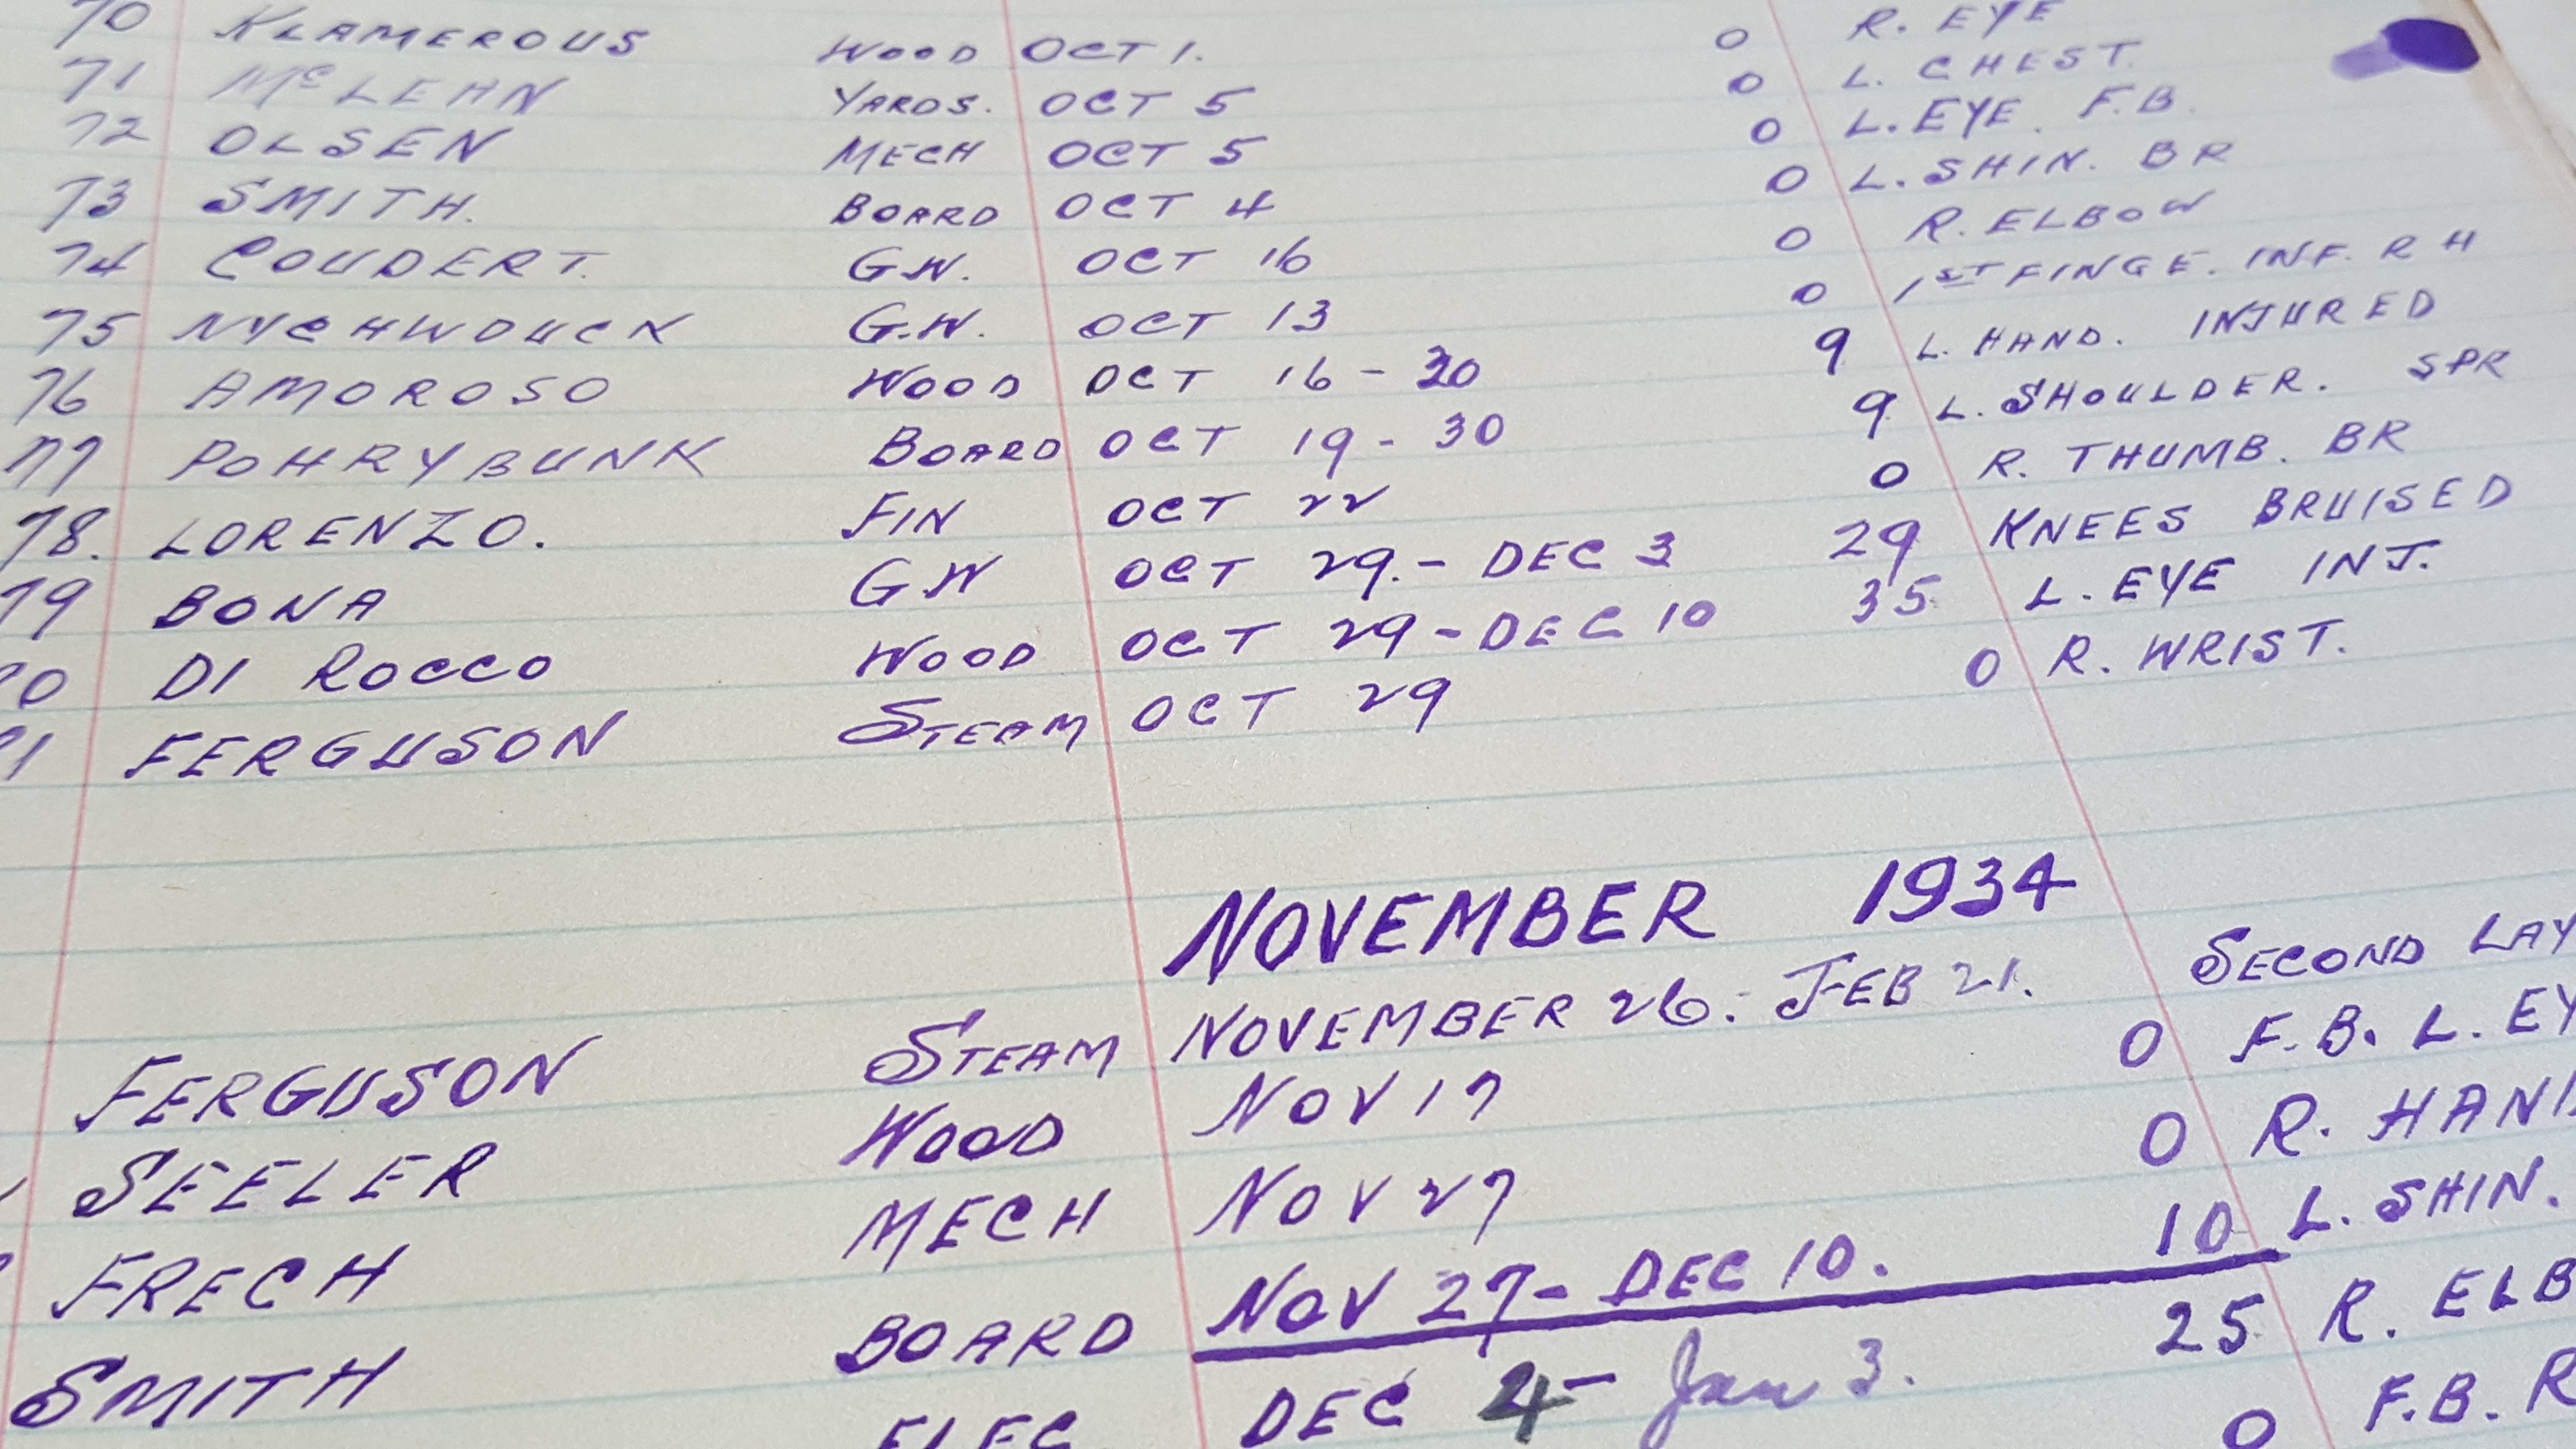 70 KLAMEROUS WOOD OCT 1. 0 R. EYE
71 McLEAN YARDS. OCT 5 0 L. CHEST.
72 OLSEN MECH OCT 5 0 L. EYE. F.B.
73 SMITH. BOARD OCT 4 0 L. SHIN. BR
74 COUDERT. G.W. OCT 16 0 R. ELBOW
75 NYCHWDUCK G.W. OCT 13 0 1ST FINGE. INF. R H
76 AMOROSO WOOD OCT 16 - 30 9 L. HAND. INJURED
77 POHRYBUNK BOARD OCT 19 - 30 9. L. SHOULDER. SPR
78. LORENZO. FIN OCT 22 0 R. THUMB. BR
79 BONA G W OCT 29. - DEC 3 29 KNEES BRUISED
80 DI ROCCO WOOD OCT 29 - DEC 10 35 L. EYE INJ.
81 FERGUSON STEAM OCT 29 0 R. WRIST.
NOVEMBER 1934
FERGUSON STEAM NOVEMBER 26. - FEB 21. SECOND LAY
SEELER WOOD NOV 17 0 F.B. L. EY
FRECH MECH NOV 27 0 R. HAND
SMITH BOARD NOV 27 - DEC 10. 10 L. SHIN.
ELEC DEC 4 - Jan 3. 25 R. ELB
0 F.B. R